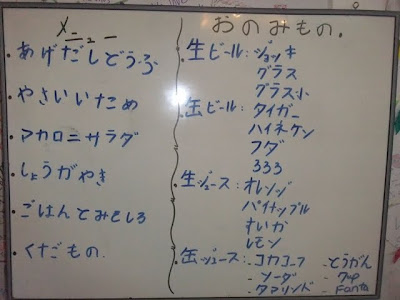 メニュー
・あげだしどうふ
・やさいいため
・マカロニサラダ
・しょうがやき
・ごはんとみそしる
・くだもの.
おのみもの.
生ビール:ジョッキ
グラス
グラス小
缶ビール:タイガー
ハイネケン
フダ
333
生ジュース:オレンジ
パイナップル
すいか
レモン
缶ジュース:コカコーラ -とうがん
-ソーダ -7up
-タマリンド -Fanta